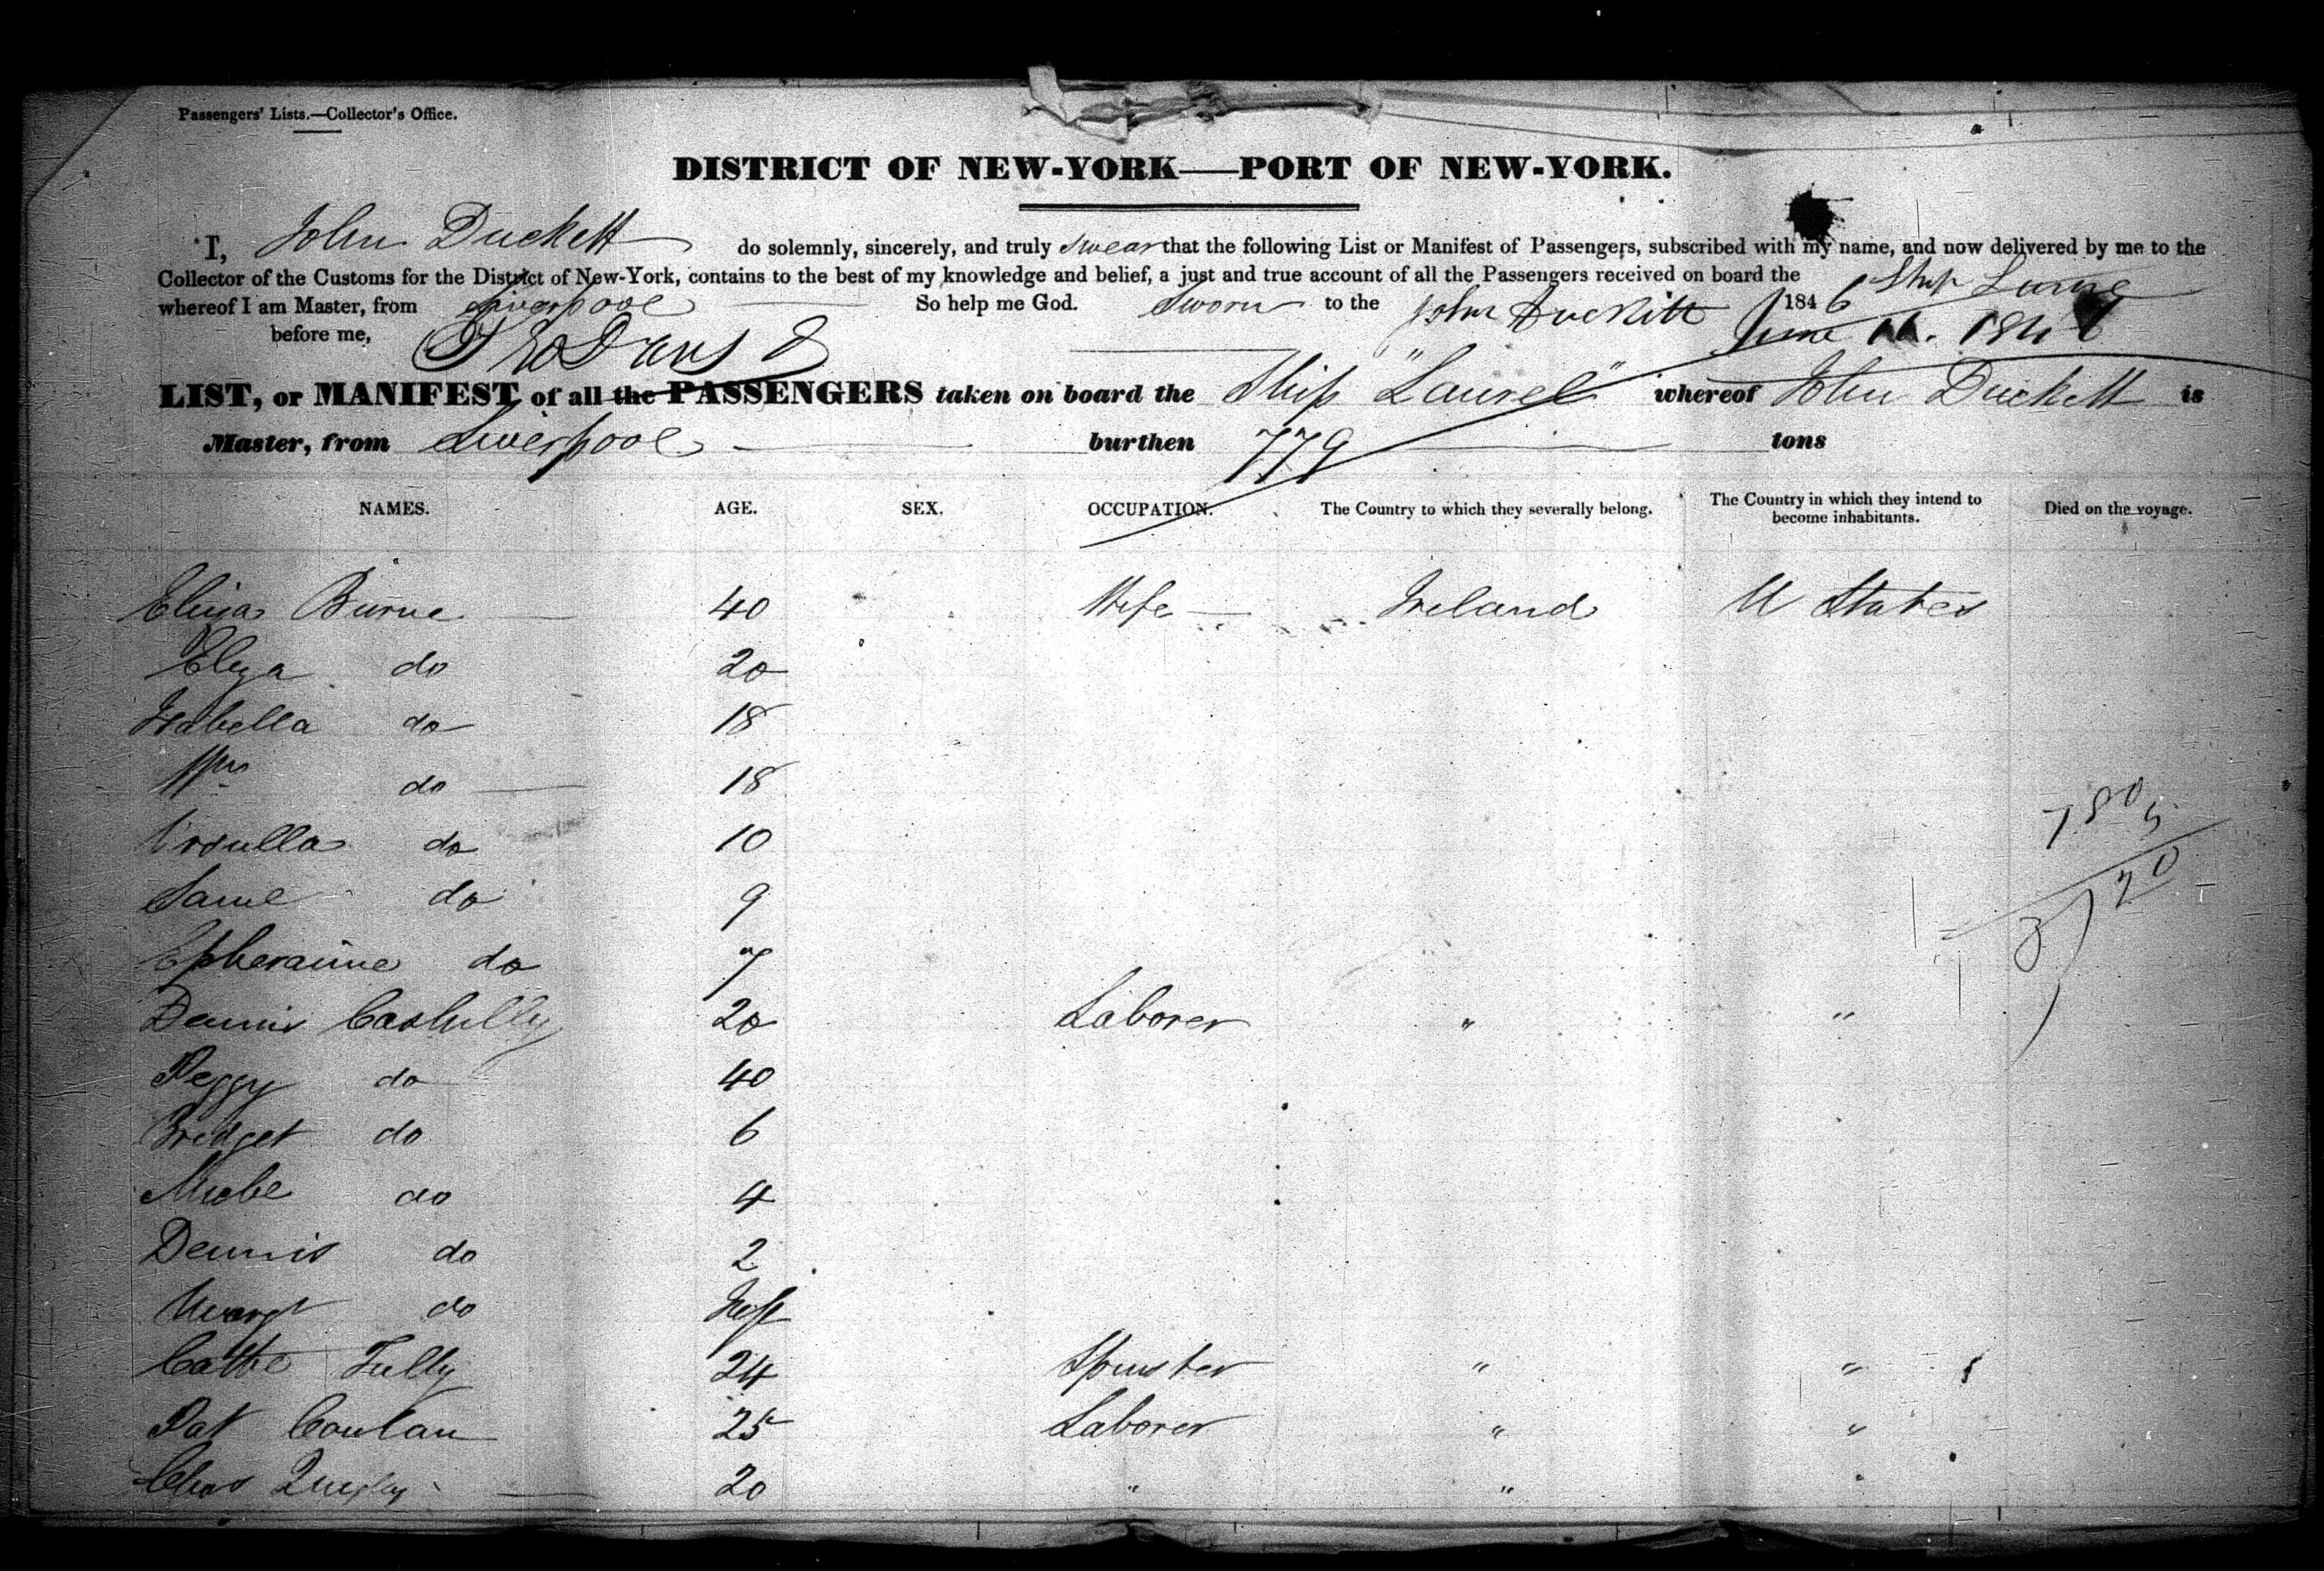 Passengers' Lists.—Collector's Office.
DISTRICT OF NEW-YORK——PORT OF NEW-YORK.
I, John Duckett do solemnly, sincerely, and truly swear that the following List or Manifest of Passengers, subscribed with my name, and now delivered by me to the
Collector of the Customs for the District of New-York, contains to the best of my knowledge and belief, a just and true account of all the Passengers received on board the Ship
whereof I am Master, from Liverpool So help me God. Sworn to the John Duckitt 1846
before me, June 11. 184
LIST, or MANIFEST of all the PASSENGERS taken on board the Ship "Laurel" whereof John Duckett is
Master, from Liverpool burthen 779 tons
NAMES. AGE. SEX. OCCUPATION. The Country to which they severally belong. The Country in which they intend to become inhabitants. Died on the voyage.
Eliza Burne 40 Wife Ireland U States
Eliza do 20
Isabella do 18
Wm do 18
Ursulla do 10
Saml do 9
Epheraime do 7
Dennis 20 Laborer " "
Peggy do 40
Bridget do 6
do 4
Dennis do 2
Margt do Inft
Cathe Tully 24 Spinster " "
Pat Conlan 25 Laborer " "
Chas Quigley 20 " " "
780
5
20
3